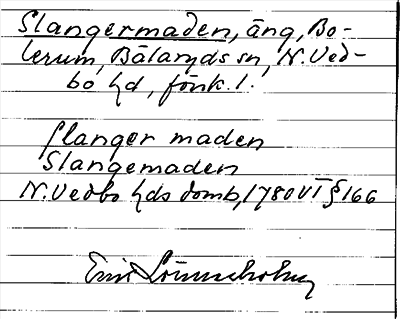 Slangermaden, äng, Bo-
lerum, Bälaryds sn, N. Ved-
bo hd, fönk. l.
slanger maden
Slangemaden
N. Vedbo hds domb, 1780 VI § 166